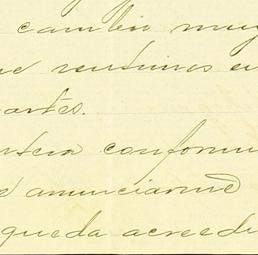 cambio muy
ue sentimos en
partes.
ntera conformi
e anunciarme
queda acreedu